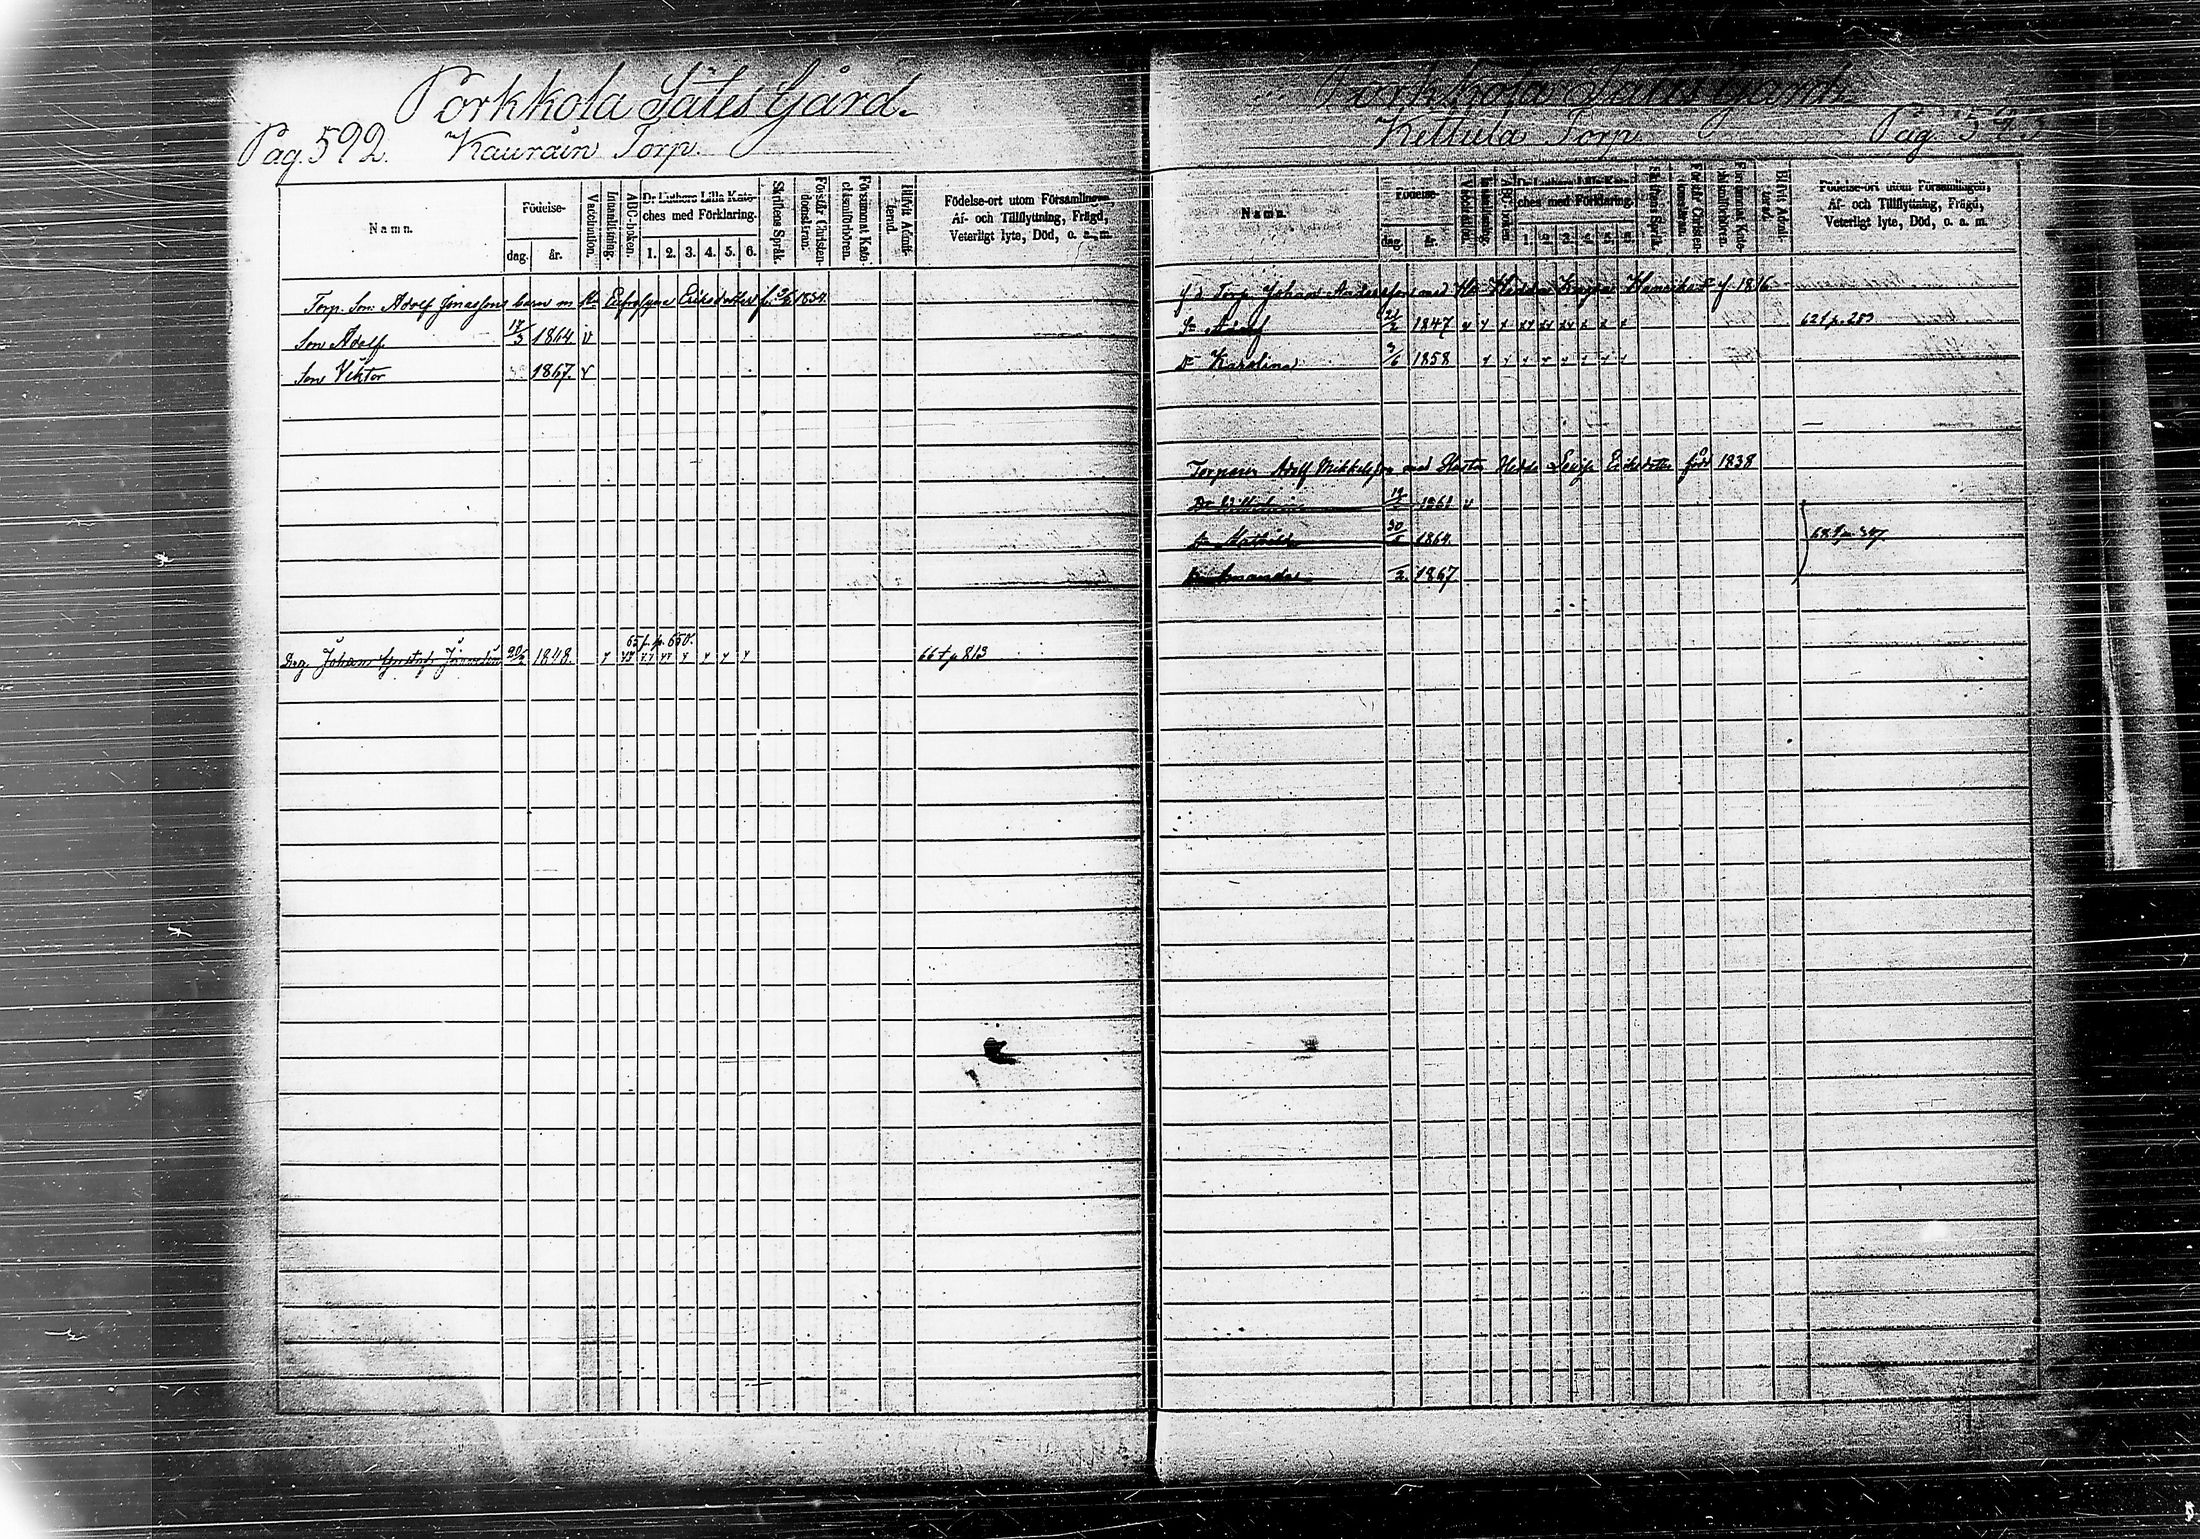 Porkkola Säteri Gård.
Pag. 592. Kaurain Torp.
Namn.
Födelse-
dag.
år.
Vaccination.
Innanläsning.
ABC-boken.
Dr Luthers Lilla Kate-
ches med Förklaring.
1. 2. 3. 4. 5. 6.
Skriftens Språk.
Förstår Christen-
domsläran.
Försummat Kate-
chismiförhören.
Blifvit Admit-
terad.
Födelse-ort utom Församlingen,
Af- och Tillflyttning, Frägd,
Veterligt lyte, Död, o. a. m.
Torp. Son Adolf Jonassons barn m Eufrosyne Eriksdotter f. 1834
Son Adolf 17/3 1864 v
Son Viktor 1867. v
65 f. p. 650.
Drg. Johan Gustaf 20/2 1848.
66 f p 813
Porkkola Säteri Gård.
Kettula Torp. Pag. 593
Namn.
Födelse-
dag.
år.
Vaccination.
Innanläsning.
ABC-boken.
Dr Luthers Lilla Kate-
ches med Förklaring.
1. 2. 3. 4. 5. 6.
Skriftens Språk.
Förstår Christen-
domsläran.
Försummat Kate-
chismiförhören.
Blifvit Admit-
terad.
Födelse-ort utom Församlingen,
Af- och Tillflyttning, Frägd,
Veterligt lyte, Död, o. a. m.
f d Torp. Johan Andersson med Hu Hedda Kajsa Henriksd f. 1816
Sn Adolf 21/2 1847 62 f p. 253
Dr Karolina 3/6 1858
Torparen Adolf Mikkelsson med Hustru Hedda Lovisa Eriksdotter född 1838
Dr Wilhelmina 1861 v
Dr Mathilda 30 1864.
Dr Amanda /2. 1867